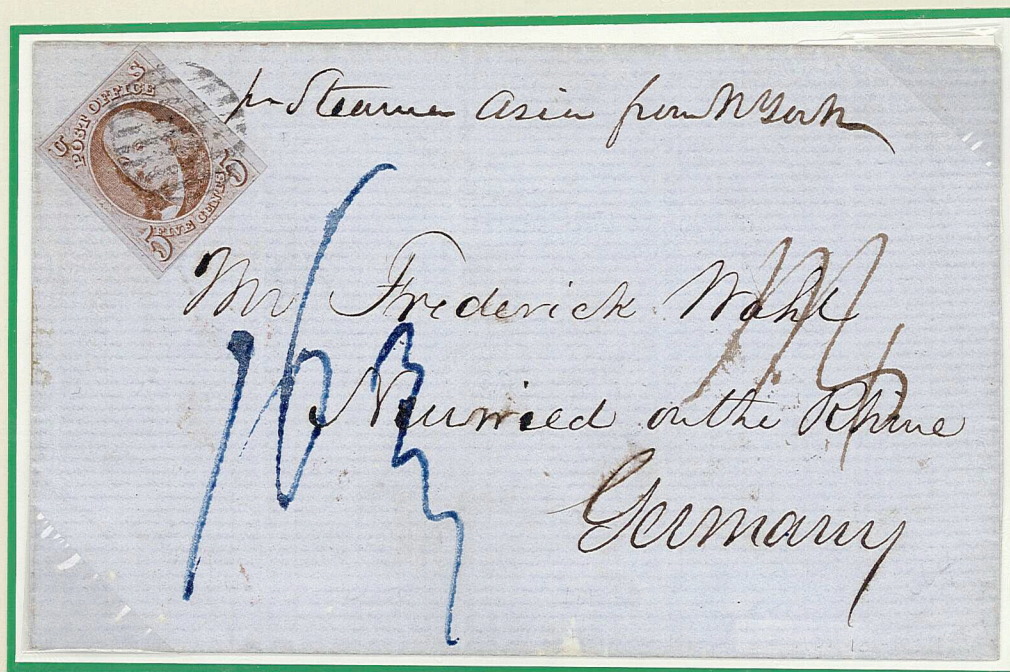 U S
POST OFFICE
FIVE CENTS
5 5
pr Steamer Asia from N York
Mr Frederick Wahl
Neuwied on the Rhine
Germany